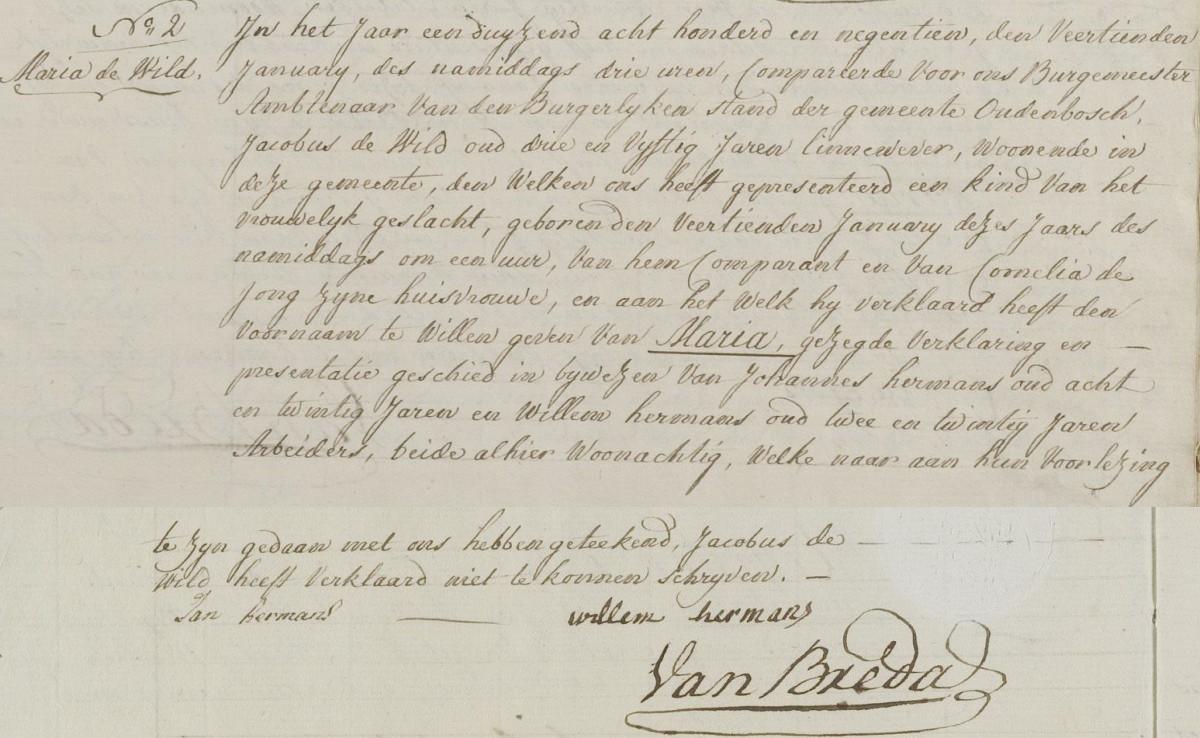 No. 2
Maria de Wild.
In het Jaar een duyzend acht honderd en negentien, den Veertienden
January, des namiddags drie uren, Compareerde Voor ons Burgemeester
Ambtenaar Van den Burgerlyken stand der gemeente Oudenbosch,
Jacobus de Wild oud drie en Vyftig Jaren linnewever, Woonende in
deze gemeente, den Welken ons heeft gepresenteerd een kind Van het
vrouwelyk geslacht, geboren den Veertienden January dezes Jaars des
namiddags om een uur, Van hem Comparant en Van Cornelia de
Jong zyne huisvrouwe, en aan het Welk hy verklaard heeft den
Voornaam te Willen geven Van Maria, gezegde Verklaring en —
presentatie geschied in bywezen Van Johannes hermans oud acht
en twintig Jaren en Willem hermans oud twee en twintig Jaren
Arbeiders, beide alhier Woonachtig, Welke naar aan hun Voorlezing
te zyn gedaan met ons hebben geteekend, Jacobus de —
Wild heeft Verklaard niet te konnen schryven. —
Jan hermans — willem hermans
Van Breda